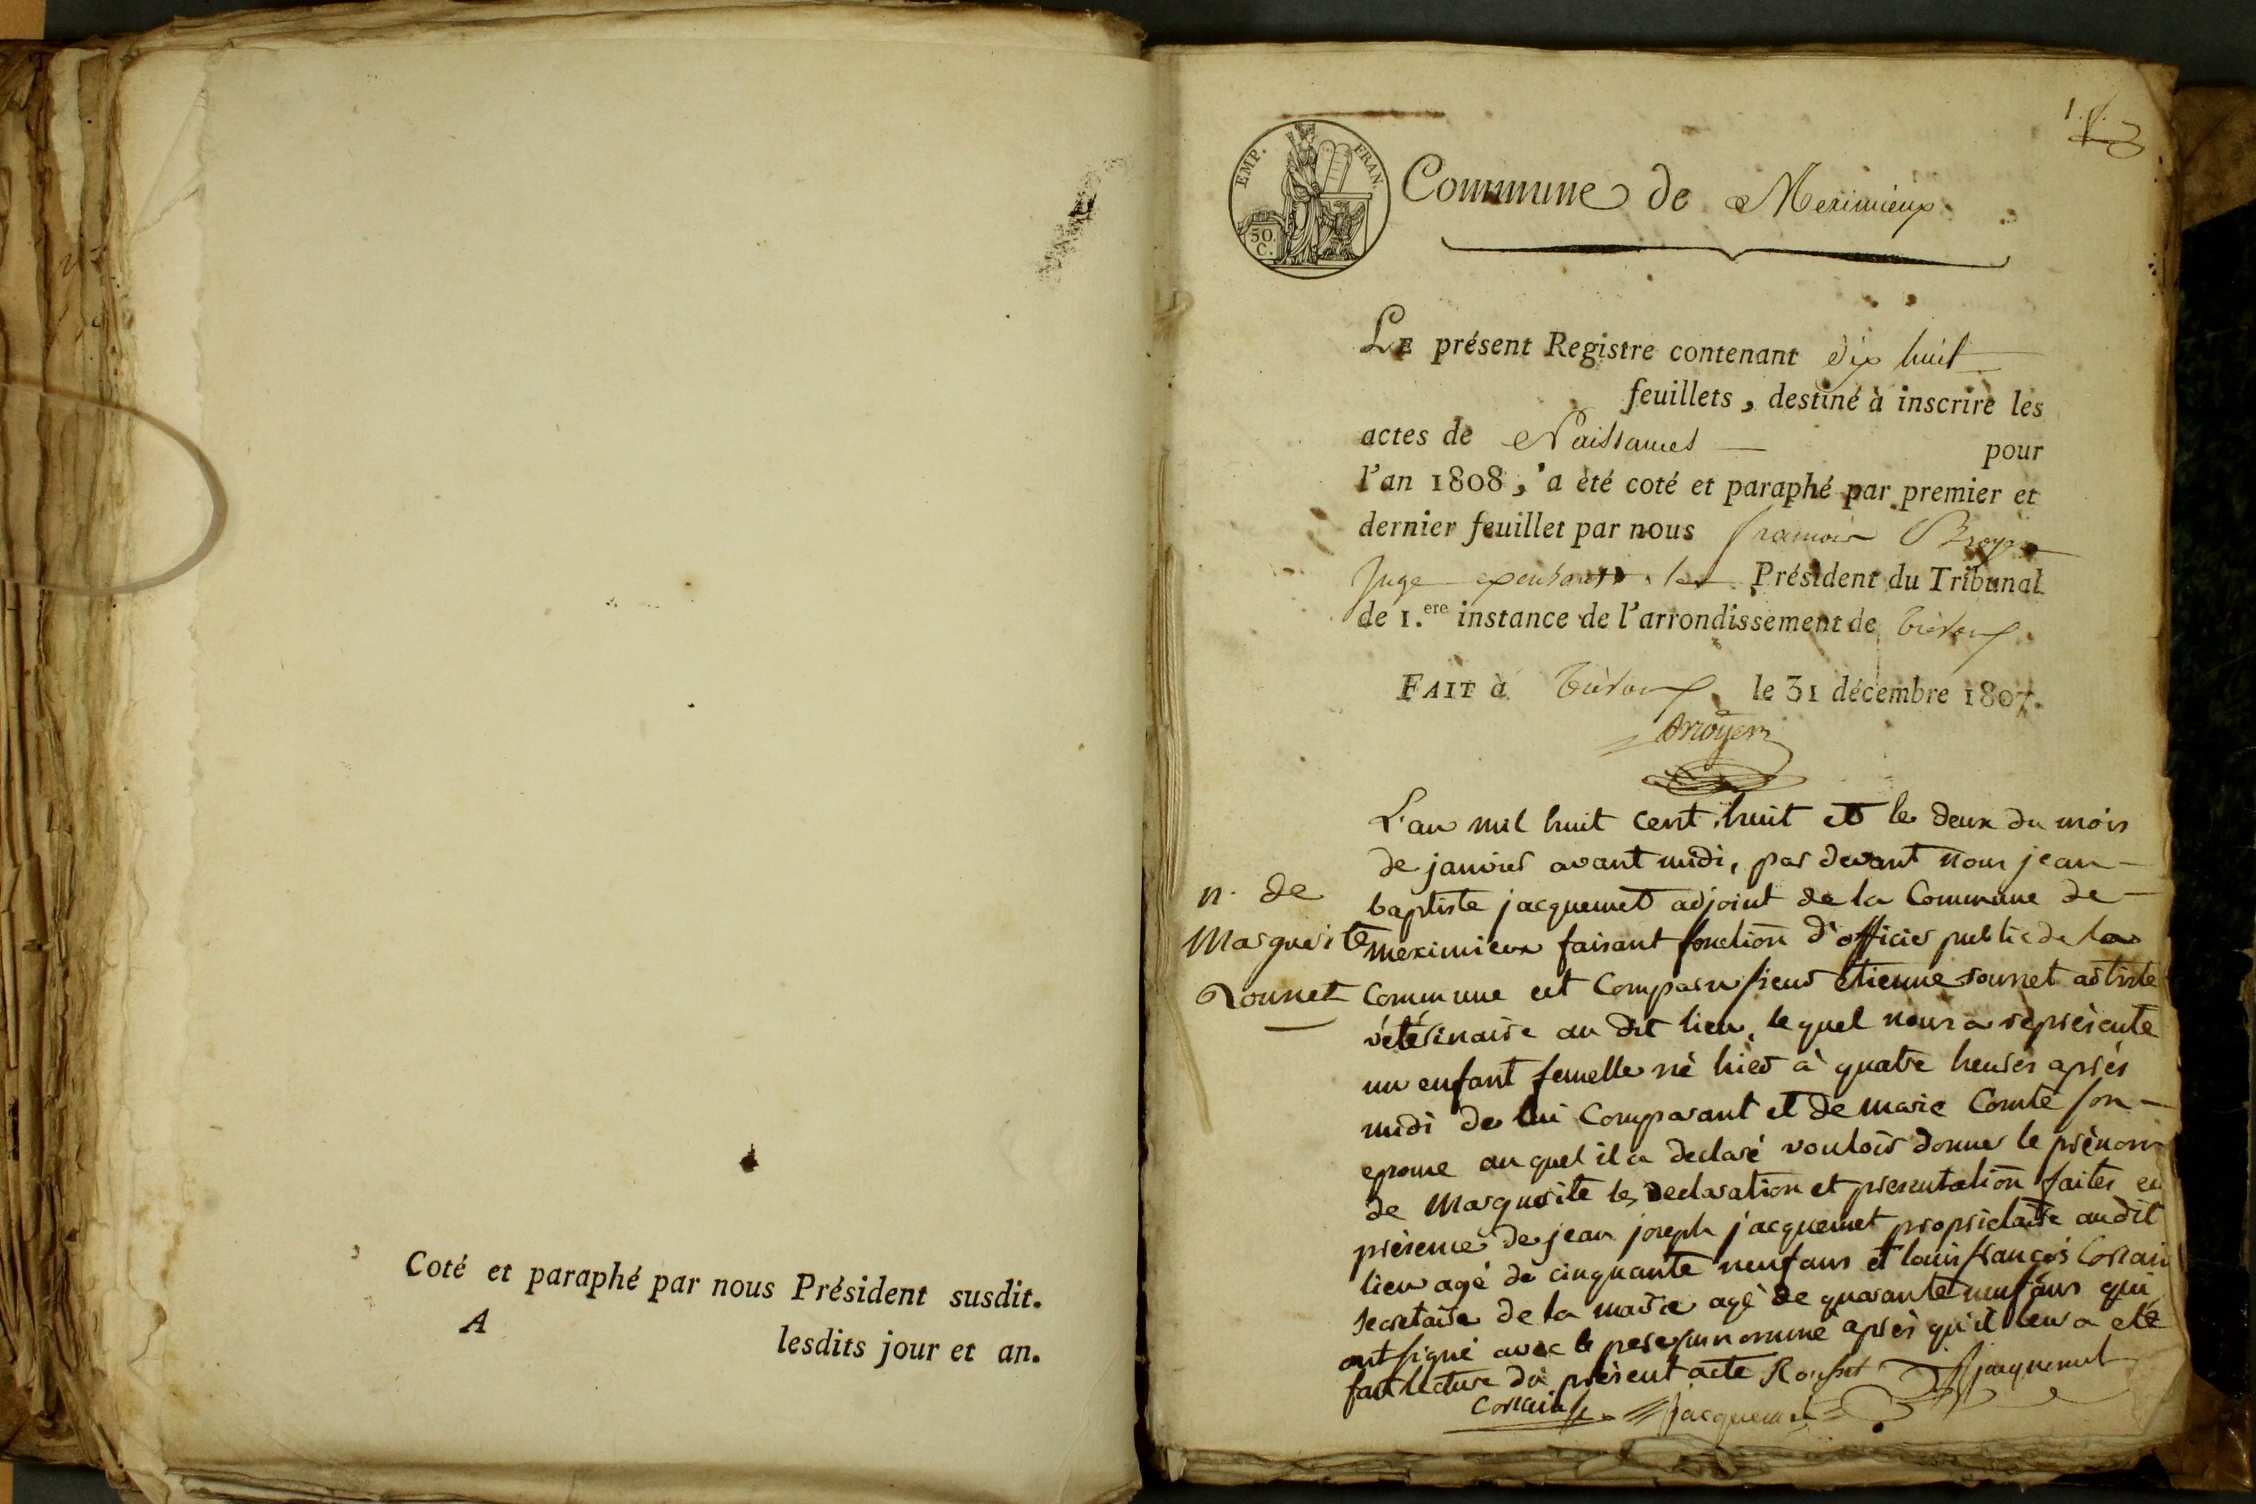 Coté et paraphé par nous Président susdit.
A lesdits jour et an.
EMP. FRAN.
50.
C.
Commune de Meximieux
LE présent Registre contenant dix huit
feuillets, destiné à inscrire les
actes de Naissances pour
l'an 1808, a été coté et paraphé par premier et
dernier feuillet par nous
Juge Président du Tribunal
de 1.ere instance de l'arrondissement de Trévoux
FAIT à Trévoux le 31 décembre 1807.
n. de
Marguerite
L'an mil huit cent huit et le deux du mois
de janvier avant midi, par devant nous jean
baptiste jacquemet adjoint de la Commune de
meximieux faisant fonction d'officier public de la
Commune est Comparu sieur etienne artiste
vétérinaire au dit lieu, lequel nous a représenté
un enfant femelle né hier à quatre heures après
midi de lui Comparant et de marie Comte son
epouse auquel il a declaré vouloir donner le prénom
de Marguerite les declaration et presentation faites en
présence de jean joseph jacquemet proprietaire audit
lieu agé de cinquante neuf ans et louis françois
secretaire de la mairie agé de quarante neuf ans qui
ont signé avec le pere après qu'il leur a eté
fait lecture du présent acte jacquemet
jacquemet